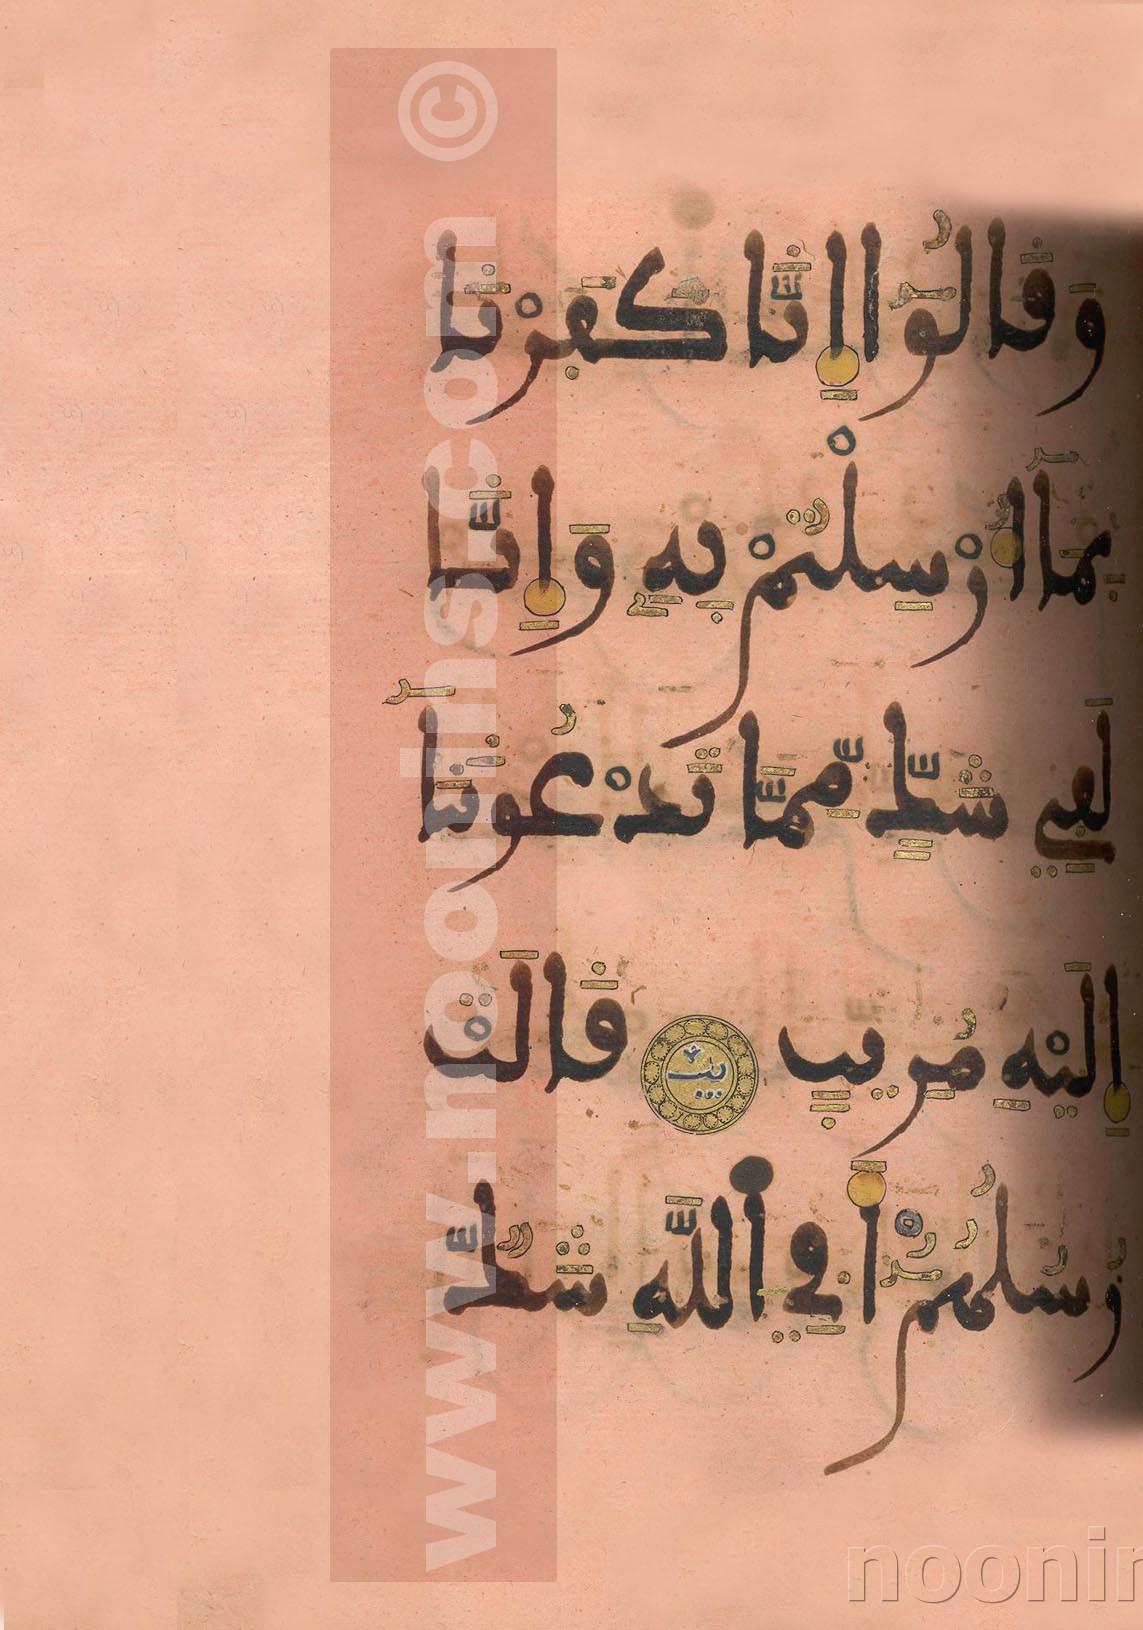 وَقَالُوٓا إِنَّا كَفَرْنَا
بِمَآ أُرْسِلْتُمْ بِهِۦ وَإِنَّا
لَفِي شَكٍّ مِّمَّا تَدْعُونَنَآ
إِلَيْهِ مُرِيبٍ قَالَتْ
رُسُلُهُمُۥٓ أَفِي اَ۬للَّهِ شَكٌّ
www.noonin's.com ©
noonin